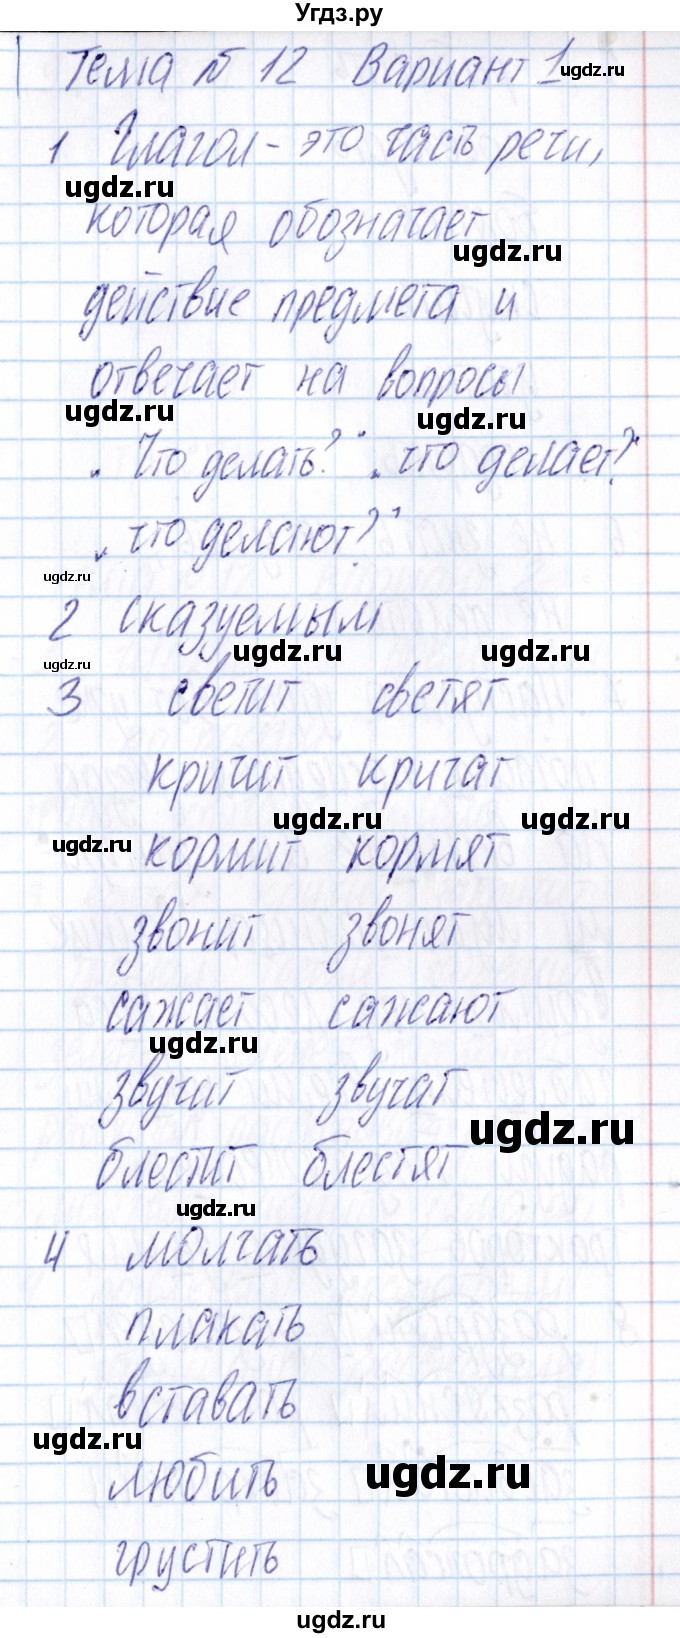 Угдз.ру
Тема № 12 Вариант 1
ugdz.ru
1 Глагол - это часть речи,
ugdz.ru
которая обозначает
ugdz.ru
действие предмета и
отвечает на вопросы
ugdz.ru ugdz.ru
„Что делать?" „что делает?"
„что делают?"
ugdz.ru
2 сказуемым
ugdz.ru ugdz.ru
ugdz.ru
3 светит светят
кричит кричат
ugdz.ru ugdz.ru
ugdz.ru
кормит кормят
звонит звонят
сажает сажают
ugdz.ru
звучит звучат
ugdz.ru
блестит блестят
ugdz.ru
4 молчать
плакать
вставать
ugdz.ru
ugdz.ru
любить
грустить
ugdz.ru